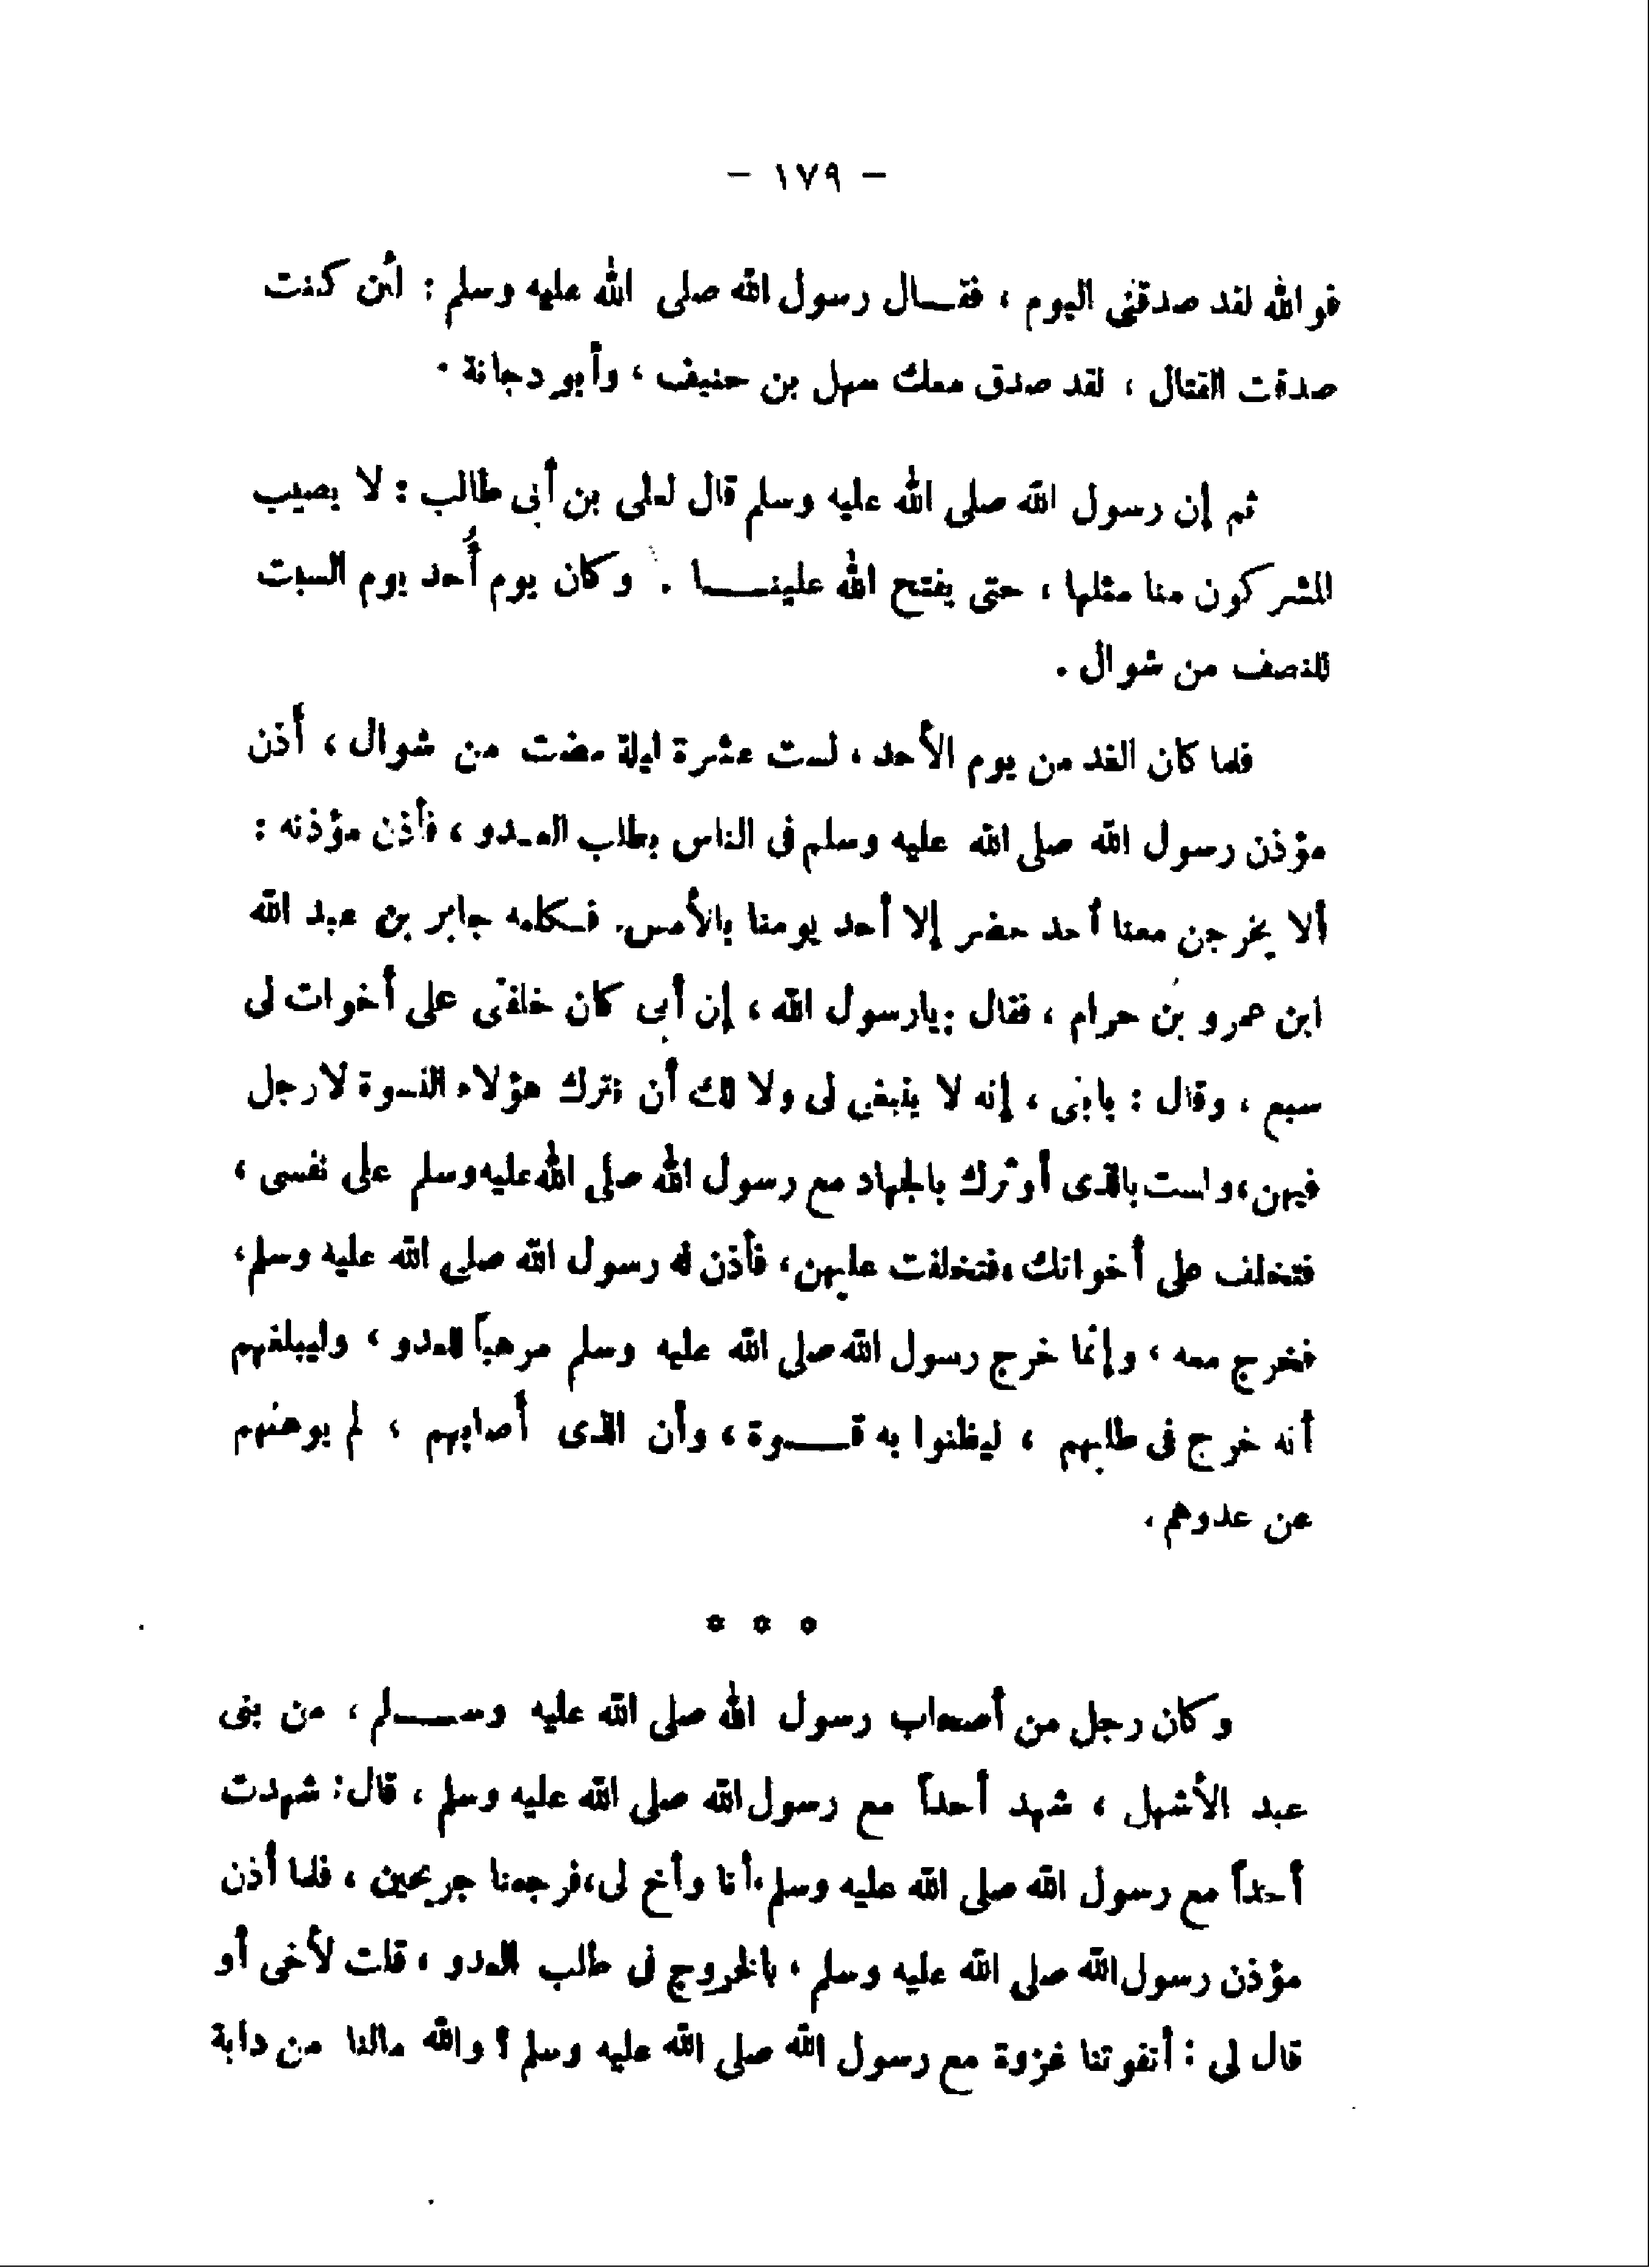 - ١٧٩ -
فوالله لقد صدقنى اليوم ، فقال رسول الله صلى الله عليه وسلم : لئن كنت
صدقت القتال ، لقد صدق معك سهل بن حنيف ، وأبو دجانة .
ثم إن رسول الله صلى الله عليه وسلم قال لعلى بن أبى طالب : لا يصيب
المشركون منا مثلها ، حتى يفتح الله علينا . وكان يوم أُحد يوم السبت
للنصف من شوال .
فلما كان الغد من يوم الأحد ، لست عشرة ليلة مضت من شوال ، أذن
مؤذن رسول الله صلى الله عليه وسلم فى الناس بطلب العدو ، فأذن مؤذنه :
ألا يخرجن معنا أحد حضر إلا أحد يومنا بالأمس. فكلمه جابر بن عبد الله
ابن عمرو بن حرام ، فقال : يارسول الله ، إن أبى كان خلفنى على أخوات لى
سبع ، وقال : يابنى ، إنه لا ينبغى لى ولا لك أن نترك هؤلاء النسوة لارجل
فيهن ، ولست بالذى أوثرك بالجهاد مع رسول الله صلى الله عليه وسلم على نفسى ،
فتخلف على أخواتك ، فتخلفت عليهن ، فأذن له رسول الله صلى الله عليه وسلم ،
فخرج معه ، وإنما خرج رسول الله صلى الله عليه وسلم مرهباً للعدو ، وليبلغهم
أنه خرج فى طلبهم ، ليظنوا به قوة ، وأن الذى أصابهم ، لم يوهنهم
عن عدوهم .
* * *
وكان رجل من أصحاب رسول الله صلى الله عليه وسلم ، من بنى
عبد الأشهل ، شهد أحداً مع رسول الله صلى الله عليه وسلم ، قال : شهدت
أحداً مع رسول الله صلى الله عليه وسلم ، أنا وأخ لى ، فرجعنا جريحين ، فلما أذن
مؤذن رسول الله صلى الله عليه وسلم ، بالخروج فى طلب العدو ، قلت لأخى أو
قال لى : أتفوتنا غزوة مع رسول الله صلى الله عليه وسلم ؟ والله مالنا من دابة